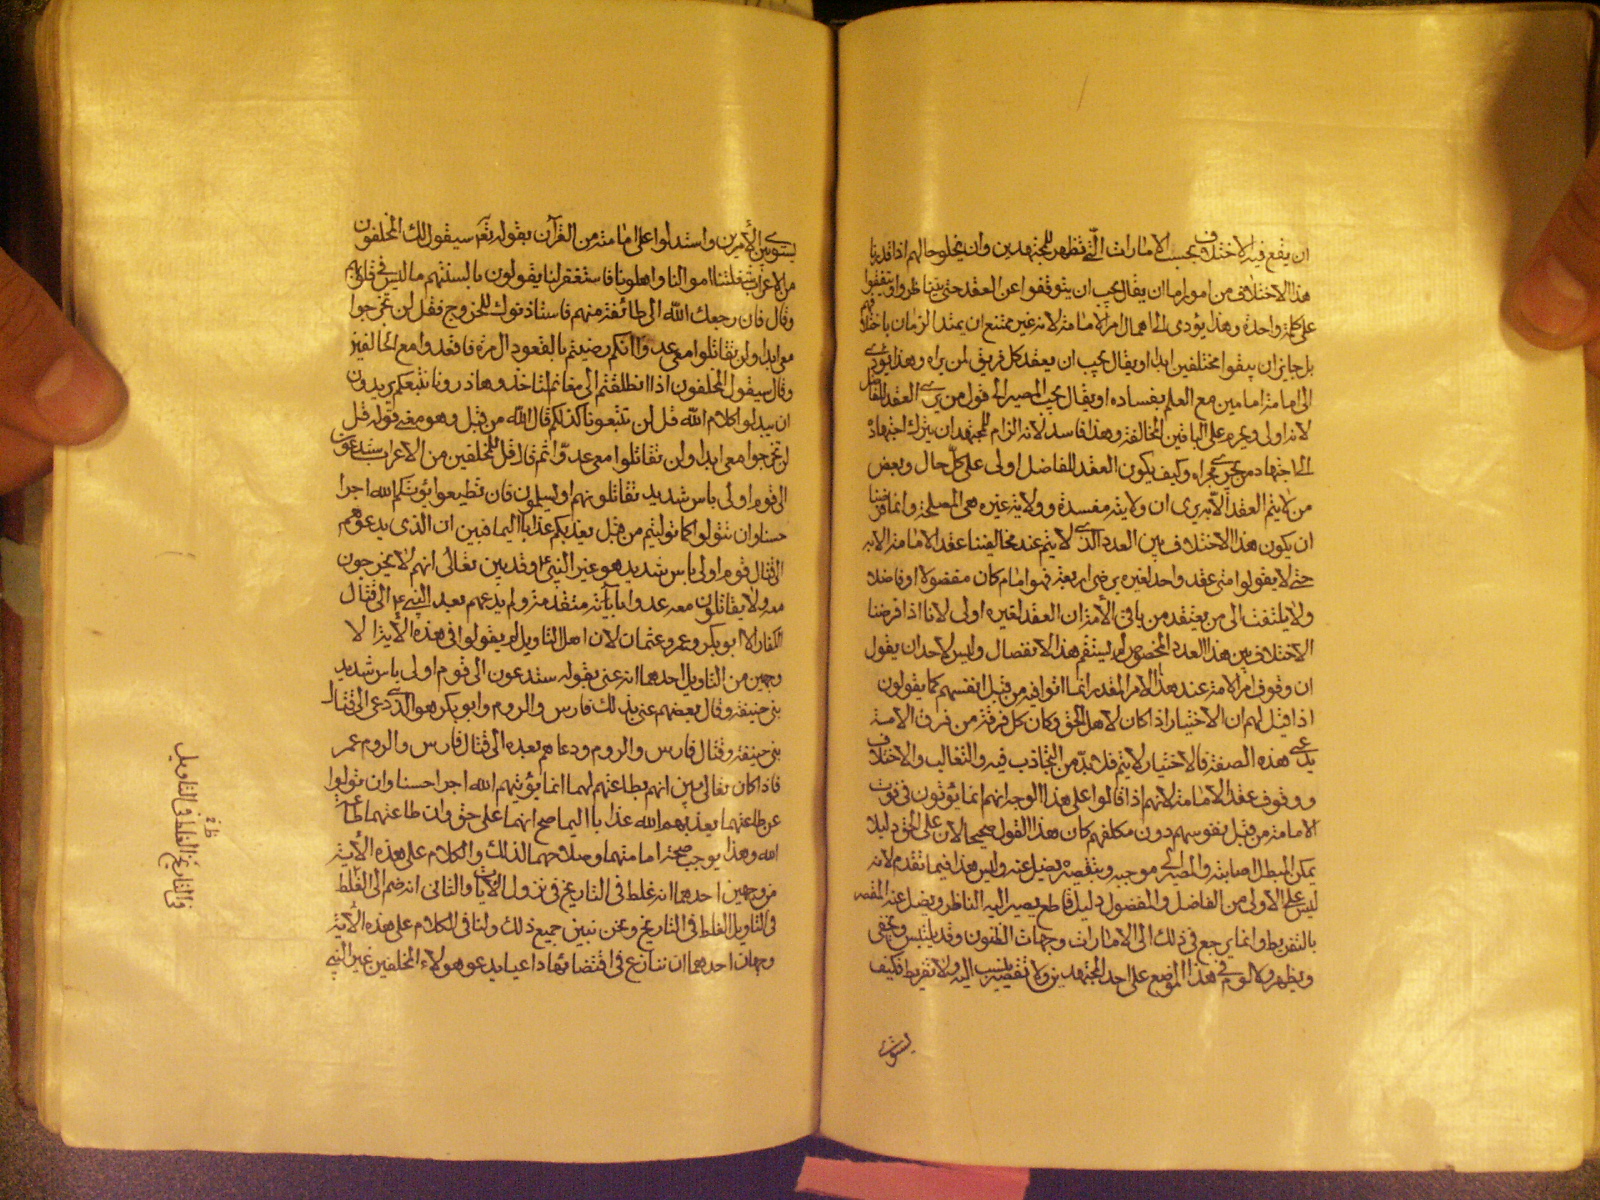 ان يقع فيه الاختلاف بحسب الامارات التي تظهر للمجتهدين وان يخلو حالهم اذا قدرنا
هذا الاختلاف من امور اما ان يقال يجب ان يتوقفوا عن العقد حتى يتناظروا ويتفقوا
على كلمة واحدة وهذا يؤدى الى اهمال امر الامامة لانه غير ممتنع ان يمتد الزمان باختلافهم
بل جايز ان يبقوا مختلفين ابدا او يقال يجب ان يعقد كل فريق لمن يراه وهذا يؤدى
الى امامة امامين مع العلم بفساده او يقال يجب المصير الى قول من يرى العقد للفاضل
لانه اولى ويحرم على الباقين المخالفة وهذا فاسد لانه الزام للمجتهد ان يترك اجتهاده
الى اجتهاد من يجرى مجراه وكيف يكون العقد للفاضل اولى على كل حال وبعض
من لا يتم العقد الا به يرى ان ولايته مفسدة وولاية غيره هى المصلحة وانما فرضنا
ان يكون هذا الاختلاف بين العدد الذى لا يتم عند مخالفينا عقد الامامة الا به
حتى لا يقولوا متى عقد واحد لغيره برضى اربعة فهو امام كان مفضولا او فاضلا
ولا يلتفت الى من يعتقد من باقى الأمة ان العقد لغيره اولى لانا اذا فرضنا
الاختلاف بين هذا العدد المخصوص لم يستقم هذا الانفصال وليس لاحد ان يقول
ان وقوف امر الامة عند هذا الامر المقدر انما اتوا فيه من قبل انفسهم كما يقولون
اذا قيل لهم ان الاختيار اذا كان لاهل الحق وكان كل فرقة من فرق الامة
يدعى هذه الصفة فالاختيار لا يتم فلا بد من التجاذب فيه والتغالب والاختلاف
ووقوف عقد الامامة لانهم اذا قالوا على هذا الوجه انهم انما يؤتون فى فوت
الامامة من قبل نفوسهم دون مكلفهم كان هذا القول صحيحا لان على الحق دليلا
يمكن المبطل اصابته والمصير الى موجبه وبتقصيره يضل عنه وليس هذا فيما تقدم لانه
ليس على الاولى من الفاضل والمفضول دليل قاطع يصير اليه الناظر ويضل عنه المقصر
بالتفريط وانما يرجع فى ذلك الى الامارات وجهات الظنون وقد يلتبس ويخفى
ويظهر ولا لوم فى هذا الموضع على احد المجتهدين ولا تقصير ينسب اليه ولا تفريط فكيف
يستوى
يستوى بين الأمرين واستدلوا على امامته من القرآن بقوله تعم سيقول لك المخلفون
من الاعراب شغلتنا اموالنا واهلونا فاستغفر لنا يقولون بالسنتهم ما ليس فى قلوبهم
وقال فان رجعك الله الى طائفة منهم فاستاذنوك للخروج فقل لن تخرجوا
معى ابدا ولن تقاتلوا معى عدوا انكم رضيتم بالقعود اول مرة فاقعدوا مع الخالفين
وقال سيقول المخلفون اذا انطلقتم الى مغانم لتاخذوها ذرونا نتبعكم يريدون
ان يبدلوا كلام الله قل لن تتبعونا كذلكم قال الله من قبل وهو معنى قوله قل
لن تخرجوا معى ابدا ولن تقاتلوا معى عدوا ثم قال قل للمخلفين من الاعراب ستدعون
الى قوم اولى باس شديد تقاتلونهم او يسلمون فان تطيعوا يؤتكم الله اجرا
حسنا وان تتولوا كما توليتم من قبل يعذبكم عذابا اليما فبين ان الذى يدعوهم
الى قتال قوم اولى باس شديد هو غير النبى ع وقد بين تعالى انهم لا يخرجون
معه ولا يقاتلون معه عدوا بآية متقدمة ولم يدعهم بعد النبى ع الى قتال
الكفار الا ابو بكر وعمر وعثمان لان اهل التاويل لم يقولوا فى هذه الآية الا
وجهين من التاويل احدهما انه عنى بقوله ستدعون الى قوم اولى باس شديد
بنى حنيفة وقال بعضهم عنى بذلك فارس والروم وابو بكر هو الذى دعى الى قتال
بنى حنيفة وقتال فارس والروم ودعاهم بعده الى قتال فارس والروم عمر
فاذا كان تعالى بين انهم بطاعتهم لهما انما يؤتيهم الله اجرا حسنا وان تولوا
عن طاعتهما يعذبهم الله عذابا اليما صح انهما على حق وان طاعتهما طاعة
الله وهذا يوجب صحة امامتهما وصلاحهما لذلك والكلام على هذه الآية
من وجهين احدهما انه غلط فى التاريخ فى نزول الآيات والثانى انه ضم الى الغلط
فى التاويل الغلط فى التاريخ ونحن نبين جميع ذلك ولنا فى الكلام على هذه الآية
وجهان احدهما ان ننازع فى اقتضائها داعيا يدعو هولاء المخلفين غير النبى
فى التاريخ الغلط فى التاويل
ظ